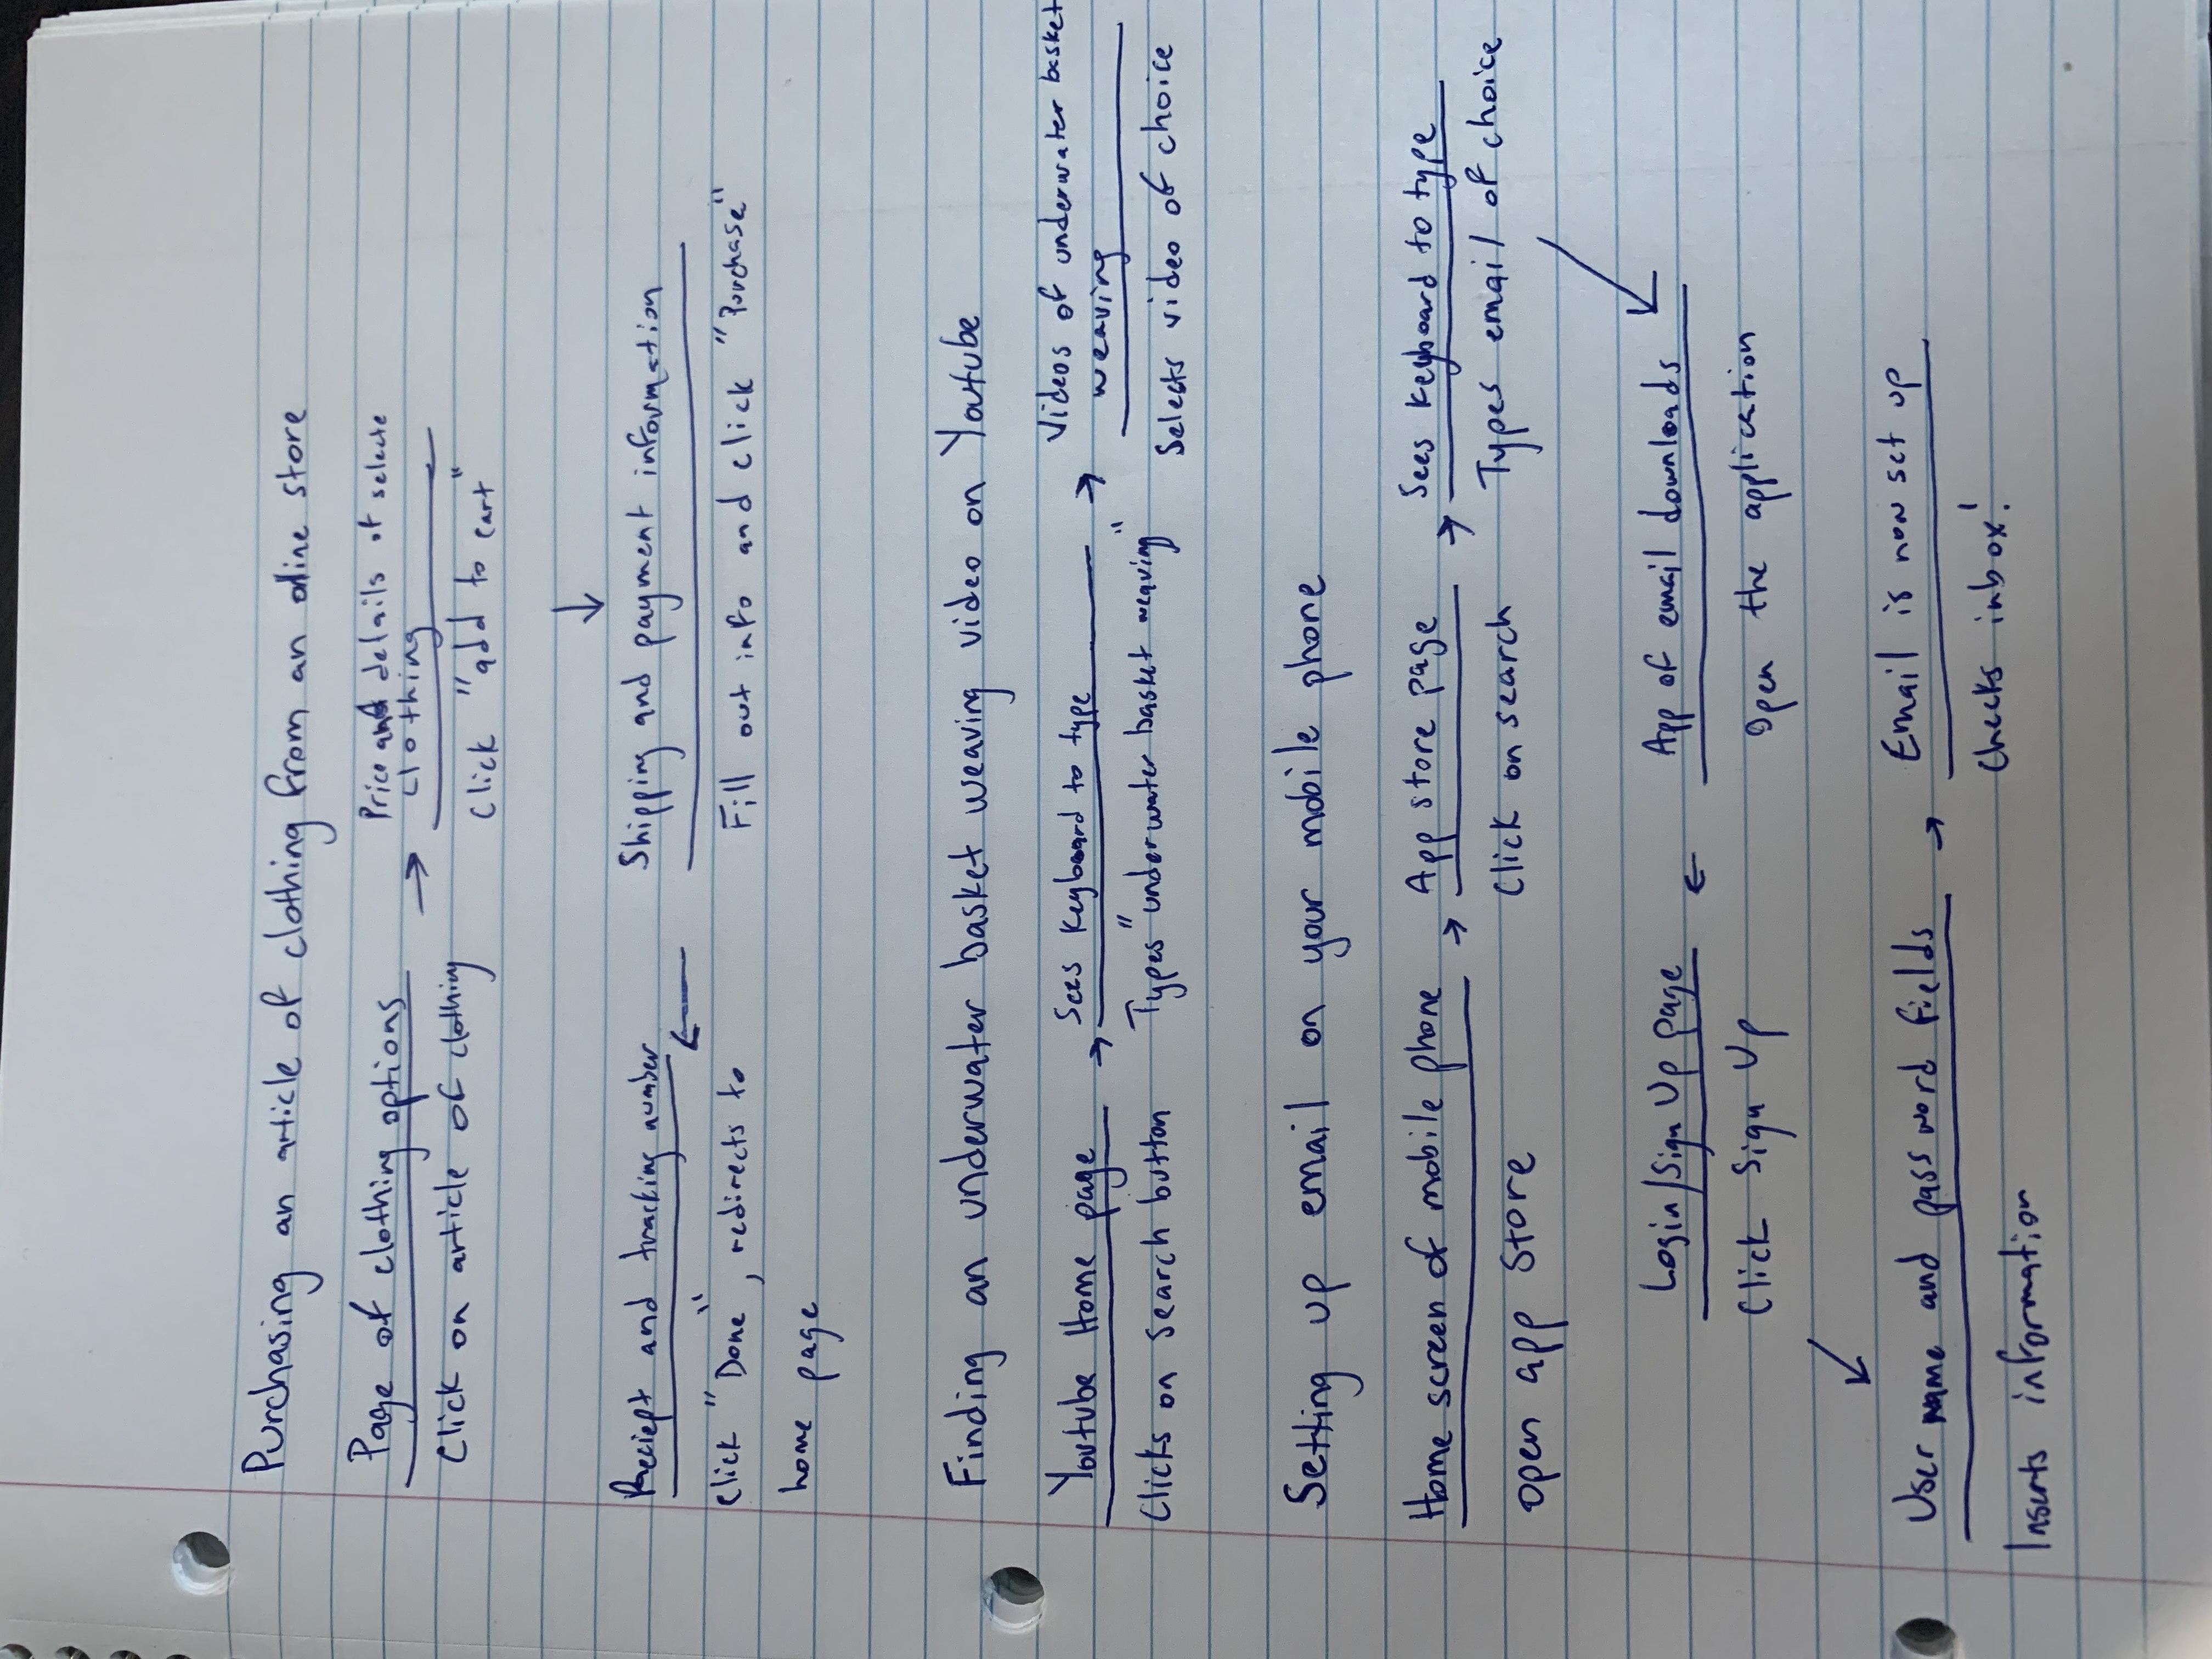 Purchasing an article of clothing from an online store
Page of clothing options
Click on article of clothing
→
Price and details of selecte
clothing
Click "add to cart"
↓
Shipping and payment information
Fill out info and click "Purchase"
←
Reciept and tracking number
Click "Done", redirects to
home page
Finding an underwater basket weaving video on Youtube
Youtube Home page
Clicks on search button
→
Sees Keyboard to type
Types "underwater basket weaving"
→
Videos of underwater basket
weaving
Selects video of choice
Setting up email on your mobile phone
Home screen of mobile phone
open app store
→
App store page
Click on search
→
Sees Keyboard to type
Types email of choice
↙
App of email downloads
Open the application
←
Login/Sign Up page
Click Sign Up
↙
User name and password fields
Inserts information
→
Email is now set up
Checks inbox!